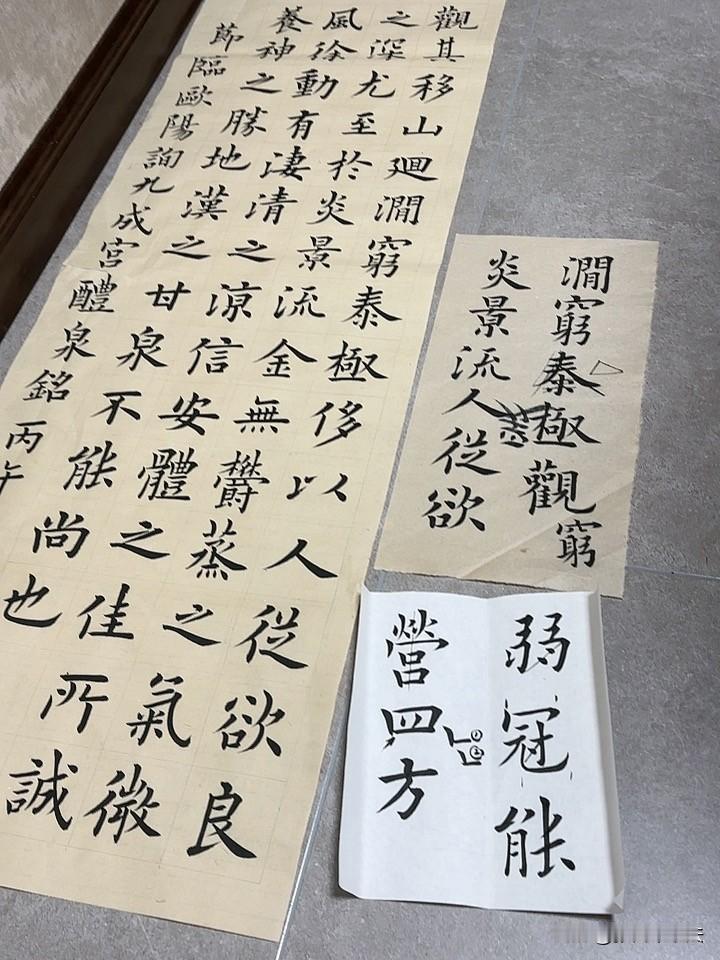 觀其移山廻澗窮泰極侈以人從欲良
之深尤至於炎景流金無鬱蒸之氣微
風徐動有淒清之涼信安體之佳所誠
養神之勝地漢之甘泉不能尚也
節臨歐陽詢九成宮醴泉銘丙午
澗窮泰極觀窮
炎景流人從欲
弱冠能
營四方